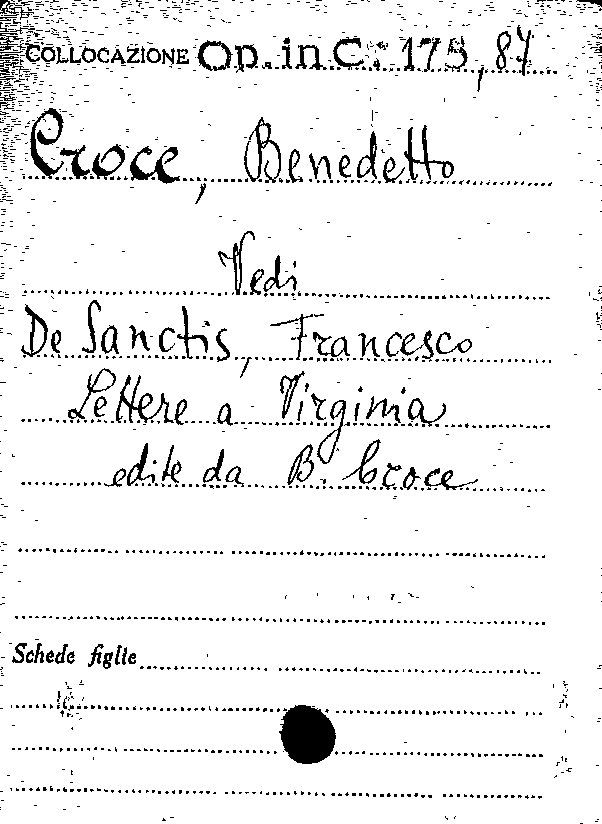 COLLOCAZIONE Op. in C. 175,87
Croce, Benedetto
Vedi
De Sanctis, Francesco
Lettere a Virginia
edite da B. Croce
Schede figlie